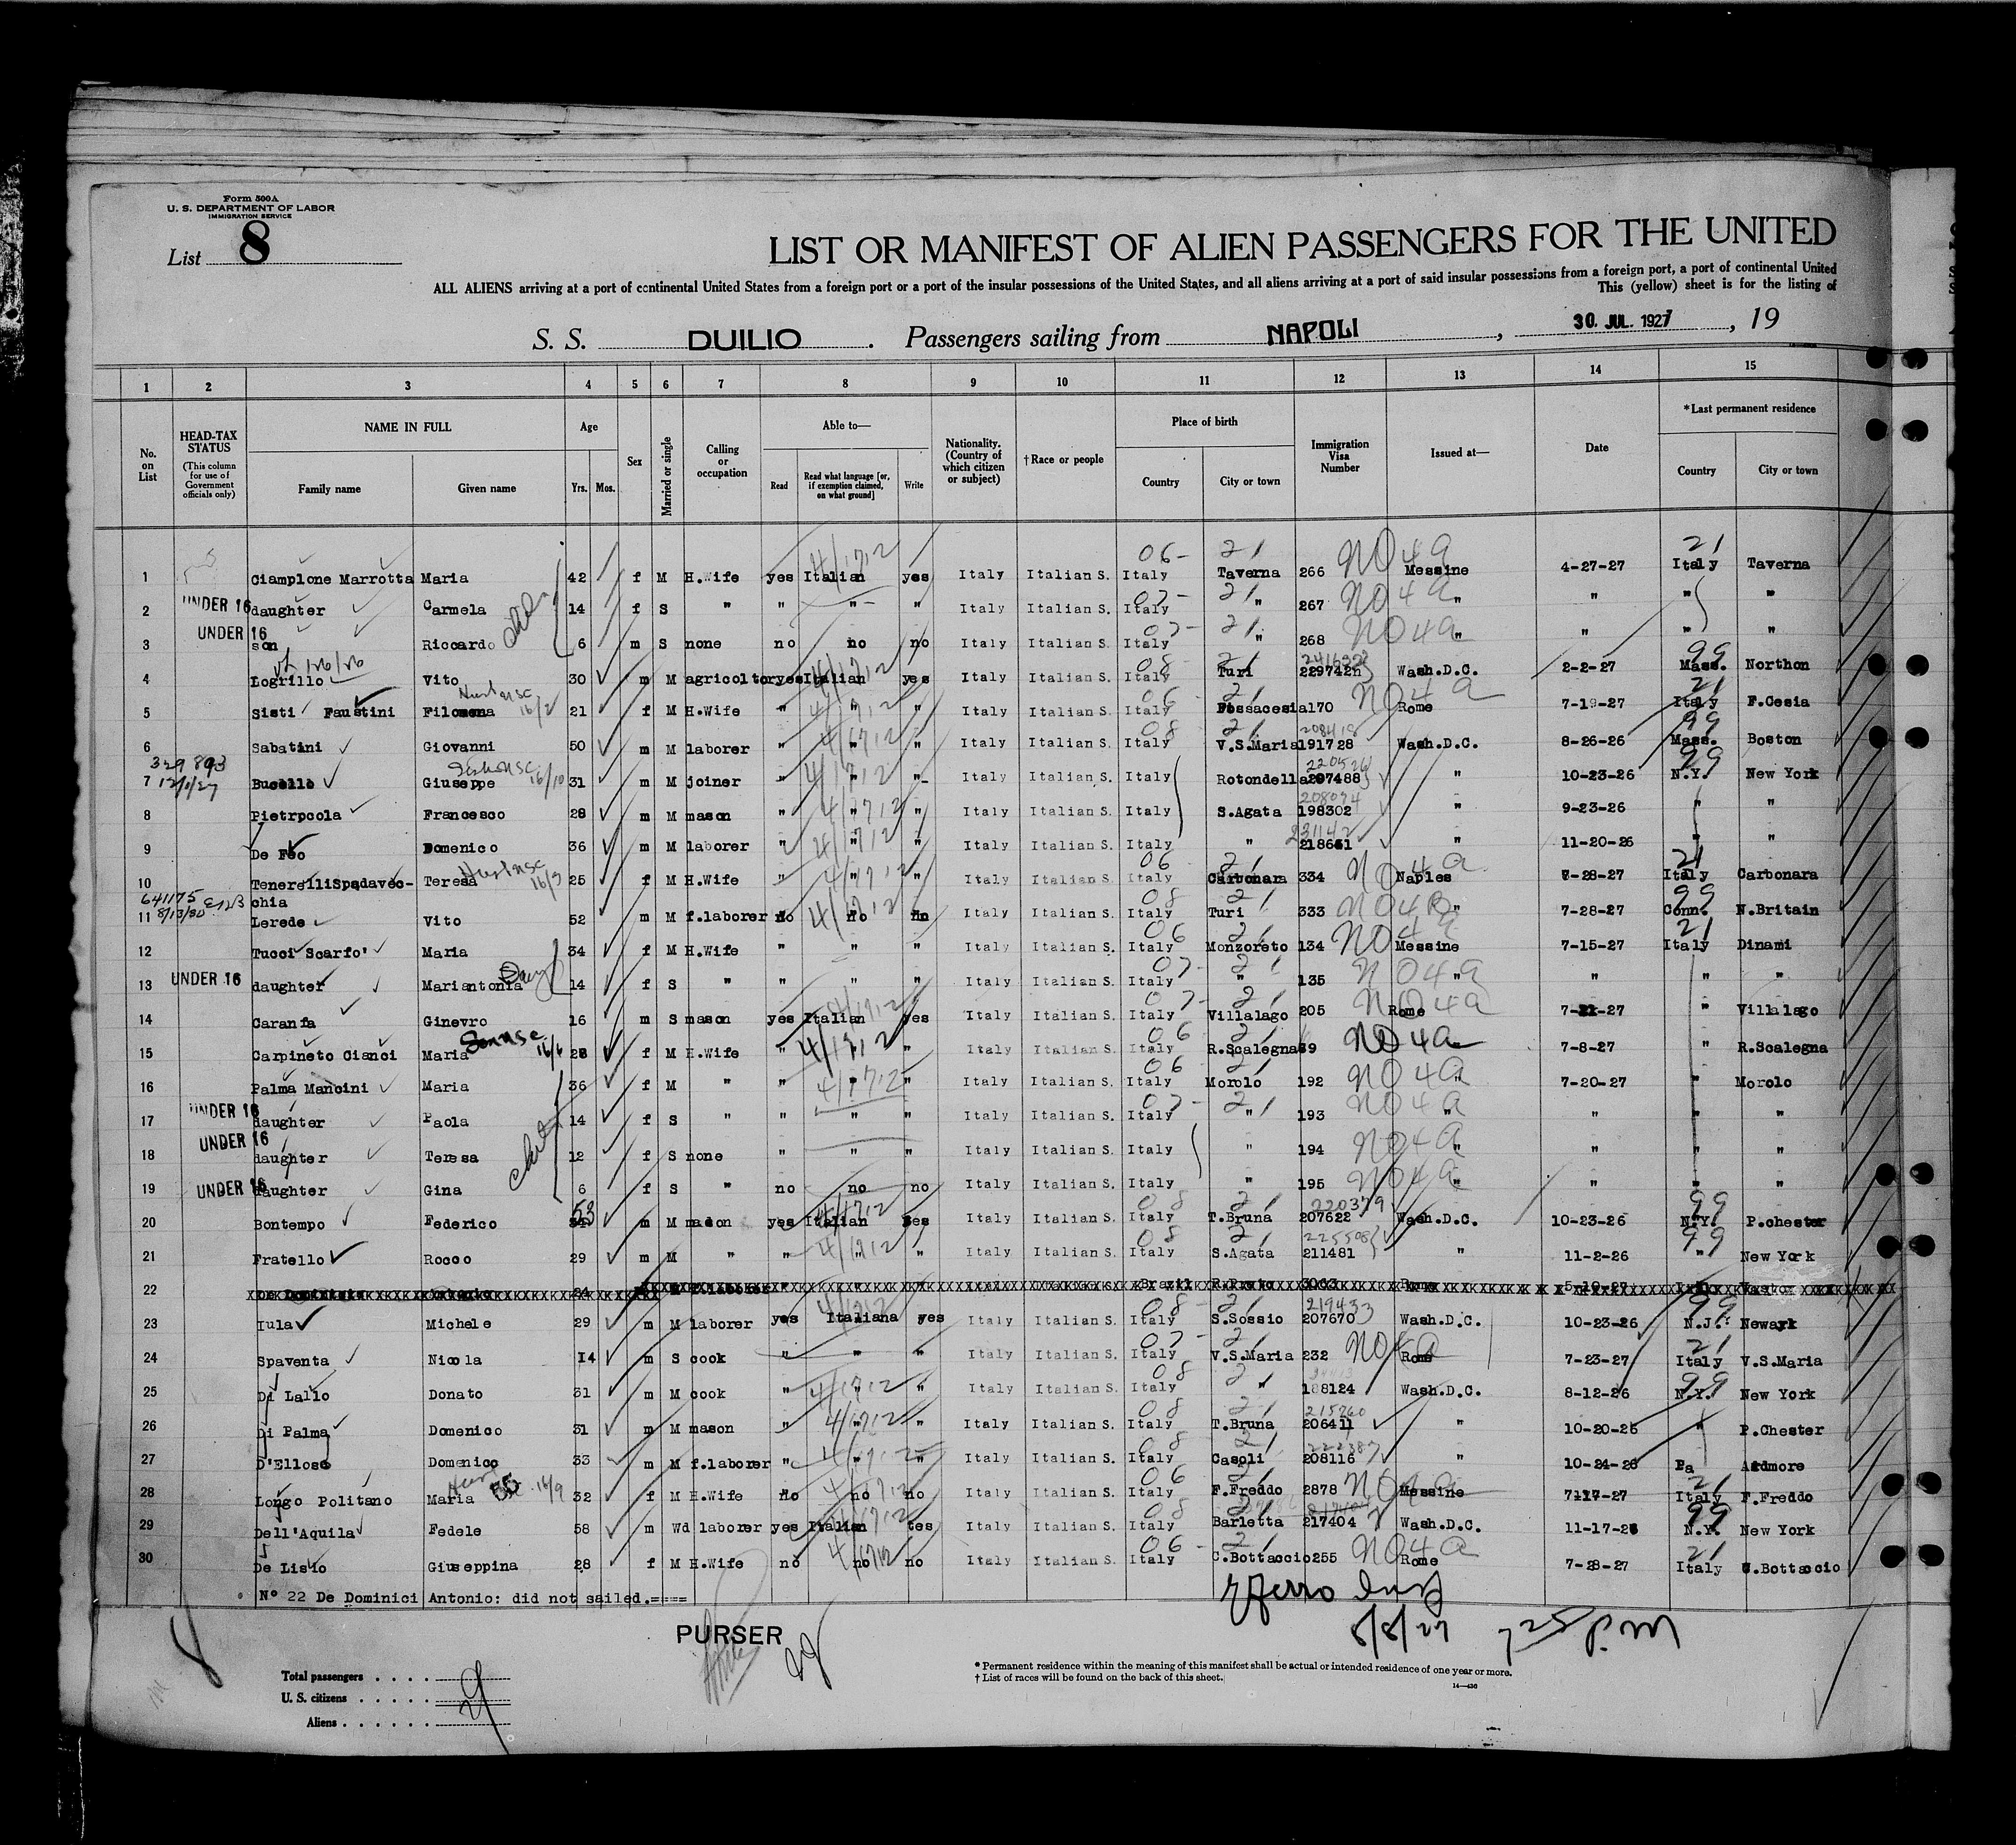 Form 500A
U. S. DEPARTMENT OF LABOR
IMMIGRATION SERVICE
List 8
LIST OR MANIFEST OF ALIEN PASSENGERS FOR THE UNITED
ALL ALIENS arriving at a port of continental United States from a foreign port or a port of the insular possessions of the United States, and all aliens arriving at a port of said insular possessions from a foreign port, a port of continental United
This (yellow) sheet is for the listing of
S. S. DUILIO . Passengers sailing from NAPOLI , 30. JUL. 1927 , 19
1 2 3 4 5 6 7 8 9 10 11 12 13 14 15
No. on List
HEAD-TAX STATUS (This column for use of Government officials only)
NAME IN FULL Family name Given name
Age Yrs. Mos.
Sex
Married or single
Calling or occupation
Able to— Read Read what language [or, if exemption claimed, on what ground] Write
Nationality. (Country of which citizen or subject)
†Race or people
Place of birth Country City or town
Immigration Visa Number
Issued at—
Date
*Last permanent residence Country City or town
1 Ciamplone Marrotta Maria 42 f M H.Wife yes Italian yes Italy Italian S. Italy Taverna 266 NO 4a Messine 4-27-27 Italy Taverna
2 UNDER 16 daughter Carmela 14 f S " " " " Italy Italian S. Italy " 267 NO 4a " " " "
3 UNDER 16 son Riccardo 6 m S none no no no Italy Italian S. Italy " 268 NO 4a " " " "
4 Logrillo Vito 30 m M agricoltor yes Italian yes Italy Italian S. Italy Turi 229742 Wash.D.C. 2-2-27 Mass. Northon
5 Sisti Faustini Filomena 21 f M H.Wife " " " Italy Italian S. Italy Fossacesia 170 NO 4a Rome 7-19-27 Italy F.Cesia
6 Sabatini Giovanni 50 m M laborer " " " Italy Italian S. Italy V.S.Maria 191728 Wash.D.C. 8-26-26 Mass. Boston
329893
7 12/1/27 Bucello Giuseppe 31 m M joiner " " " Italy Italian S. Italy Rotondella 207488 " 10-23-26 N.Y. New York
8 Pietrpcola Francesco 28 m M mason " " " Italy Italian S. Italy S.Agata 198302 " 9-23-26 " "
9 De Feo Domenico 36 m M laborer " " " Italy Italian S. Italy " 218661 " 11-20-26 " "
10 TenerelliSpadavec- Teresa 25 f M H.Wife " " " Italy Italian S. Italy Carbonara 334 NO 4a Naples 7-28-27 Italy Carbonara
641175 chia
11 8/13/80 Lerede Vito 52 m M f.laborer no no no Italy Italian S. Italy Turi 333 NO 4 " 7-28-27 Conn. N.Britain
12 Tucci Scarfo' Maria 34 f M H.Wife " " " Italy Italian S. Italy Monzoreto 134 NO 4a Messine 7-15-27 Italy Dinami
13 UNDER 16 daughter Mariantonia 14 f S " " " " Italy Italian S. Italy " 135 NO 4a " " " "
14 Caranfa Ginevro 16 m S mason yes Italian yes Italy Italian S. Italy Villalago 205 NO 4a Rome 7- -27 " Villalago
15 Carpineto Cianci Maria 28 f M H.Wife " " " Italy Italian S. Italy R.Scalegna 69 NO 4a 7-8-27 " R.Scalegna
16 Palma Mancini Maria 36 f M " " " " Italy Italian S. Italy Morolo 192 NO 4a " 7-20-27 " Morolo
17 UNDER 16 daughter Paola 14 f S " " " " Italy Italian S. Italy " 193 NO 4a " " " "
18 UNDER 16 daughter Teresa 12 f S none " " " Italy Italian S. Italy " 194 NO 4a " " " "
19 UNDER 16 daughter Gina 6 f S " no no no Italy Italian S. Italy " 195 NO 4a " " " "
20 Bontempo Federico 53 m M mason yes Italian yes Italy Italian S. Italy T.Bruna 207622 220379 Wash.D.C. 10-23-26 N.Y. P.chester
21 Fratello Rocco 29 m M " " " " Italy Italian S. Italy S.Agata 211481 " 11-2-26 " New York
22 De Dominicis Antonio 24 M f.laborer Brazil R.Preto 3063 Rome 5-19-27
23 Iula Michele 29 m M laborer yes Italiana yes Italy Italian S. Italy S.Sossio 207670 219433 Wash.D.C. 10-23-26 N.J. Newark
24 Spaventa Nicola 14 m S cook " " " Italy Italian S. Italy V.S.Maria 232 NO 4a Rome 7-23-27 Italy V.S.Maria
25 Di Lallo Donato 31 m M cook " " " Italy Italian S. Italy " 188124 Wash.D.C. 8-12-26 N.Y. New York
26 Di Palma Domenico 31 m M mason " " " Italy Italian S. Italy T.Bruna 206411 215760 " 10-20-26 " P.Chester
27 D'Elloso Domenico 33 m M f.laborer " " " Italy Italian S. Italy Casoli 208116 " 10-24-26 Pa Ardmore
28 Longo Politano Maria 32 f M H.Wife no no no Italy Italian S. Italy F.Freddo 2878 Messine 7-17-27 Italy F.Freddo
29 Dell'Aquila Fedele 58 m Wd laborer yes Italian yes Italy Italian S. Italy Barletta 217404 Wash.D.C. 11-17-26 N.Y. New York
30 De Lisio Giuseppina 28 f M H.Wife no no no Italy Italian S. Italy C.Bottaccio 255 NO 4a Rome 7-28-27 Italy C.Bottaccio
N° 22 De Dominici Antonio: did not sailed.====
8/8/27 7 25 P.M
PURSER
Total passengers
U. S. citizens
Aliens
*Permanent residence within the meaning of this manifest shall be actual or intended residence of one year or more.
†List of races will be found on the back of this sheet.
14—436